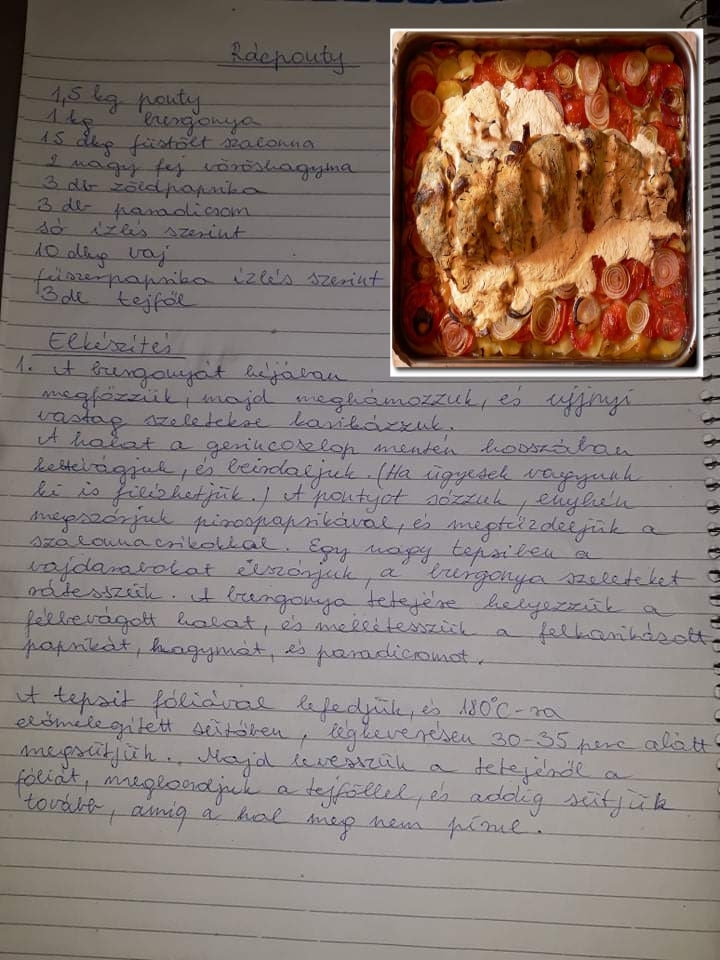 Rácponty
1,5 kg ponty
1 kg burgonya
15 dkg füstölt szalonna
2 nagy fej vöröshagyma
3 db zöldpaprika
3 db paradicsom
só ízlés szerint
10 dkg vaj
fűszerpaprika ízlés szerint
3 dl tejföl
Elkészítés
1. A burgonyát héjában
megfőzzük, majd meghámozzuk, és ujjnyi
vastag szeletekre karikázzuk.
A halat a gerincoszlop mentén hosszában
kettévágjuk, és beirdaljuk. (Ha ügyesek vagyunk
ki is filézhetjük.) A pontyot sózzuk, enyhén
megszórjuk pirospaprikával, és megtűzdeljük a
szalonnacsíkokkal. Egy nagy tepsiben a
vajdarabokat elszórjuk, a burgonya szeleteket
rátesszük. A burgonya tetejére helyezzük a
félbevágott halat, és mellétesszük a felkarikázott
paprikát, hagymát, és paradicsomot.
A tepsit fóliával lefedjük, és 180°C-ra
előmelegített sütőben, légkeverésen 30-35 perc alatt
megsütjük. Majd levesszük a tetejéről a
fóliát, meglocsoljuk a tejföllel, és addig sütjük
tovább, amíg a hal meg nem pirul.